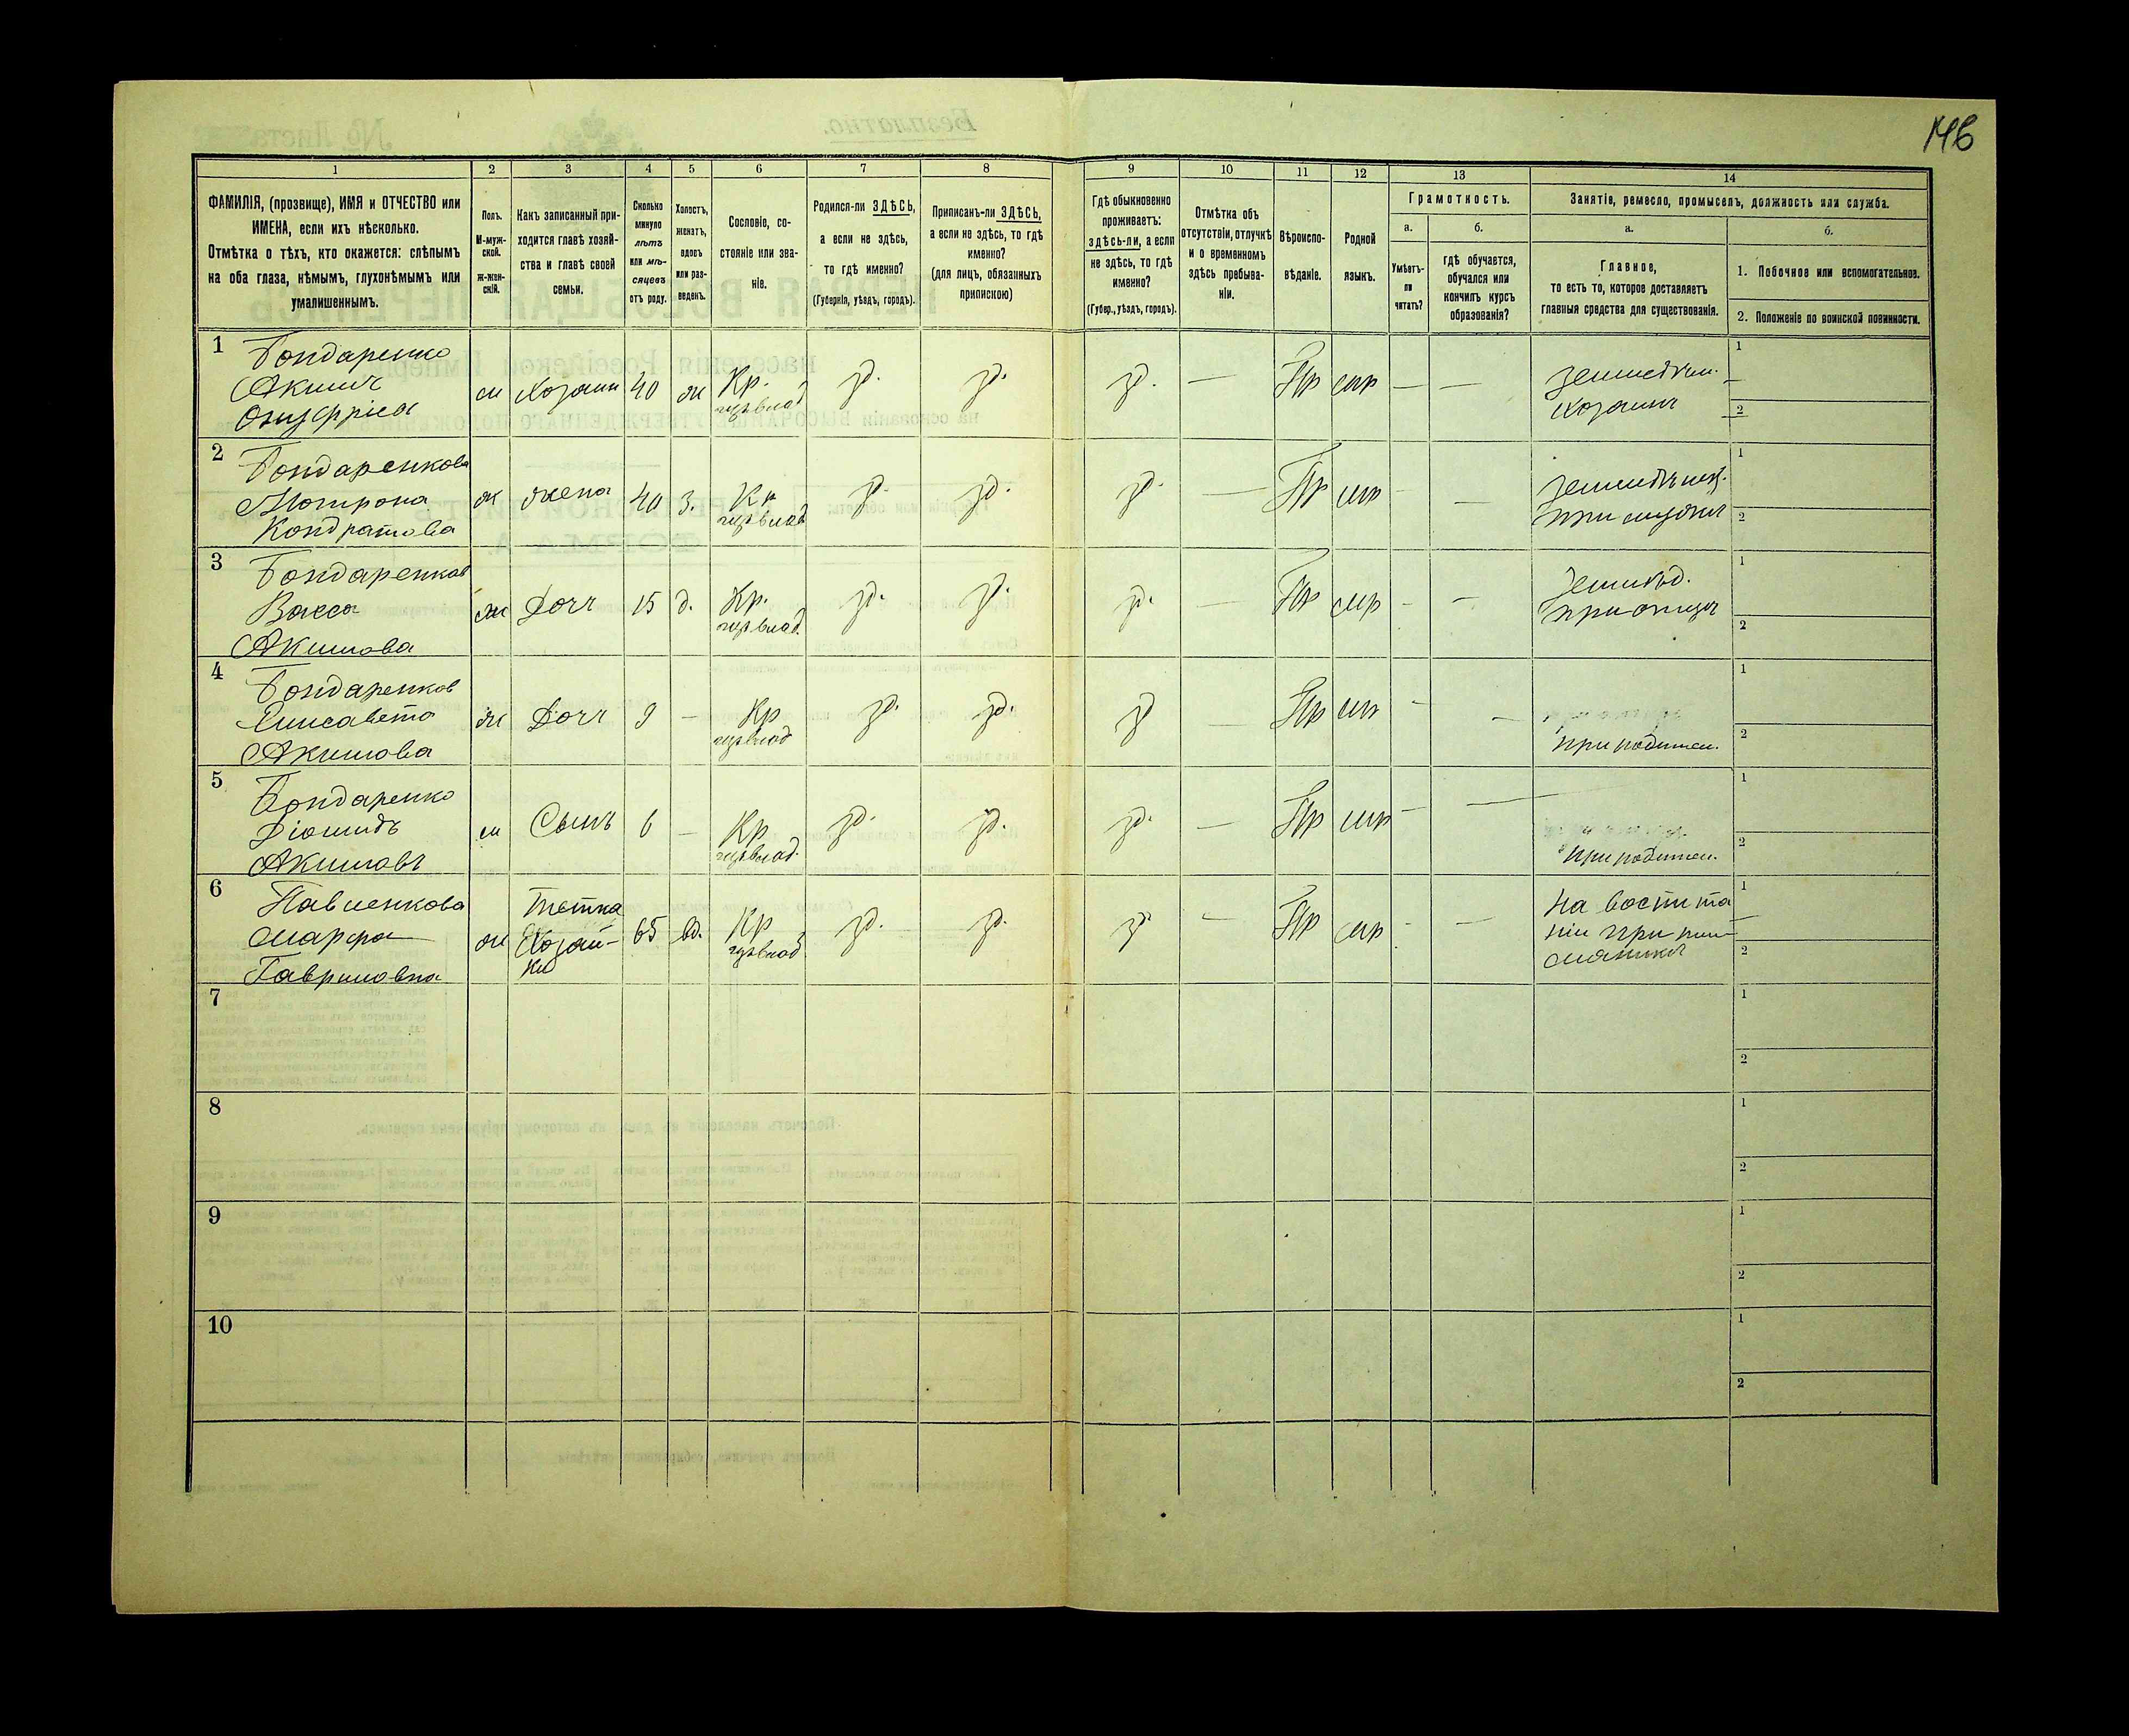 146
1 2 3 4 5 6 7 8 9 10 11 12 13 14
ФАМИЛІЯ, (прозвище), ИМЯ и ОТЧЕСТВО или
ИМЕНА, если ихъ нѣсколько.
Отмѣтка о тѣхъ, кто окажется: слѣпымъ
на оба глаза, нѣмымъ, глухонѣмымъ или
умалишеннымъ.
Полъ.
М-муж-
ской.
Ж-жен-
скій.
Какъ записанный при-
ходится главѣ хозяй-
ства и главѣ своей
семьи.
Сколько
минуло
лѣтъ
или мѣ-
сяцевъ
отъ роду.
Холостъ,
женатъ,
вдовъ
или раз-
веденъ.
Сословіе, со-
стояніе или зва-
ніе.
Родился-ли ЗДѢСЬ,
а если не здѣсь,
то гдѣ именно?
(Губернія, уѣздъ, городъ).
Приписанъ-ли ЗДѢСЬ,
а если не здѣсь, то гдѣ
именно?
(для лицъ, обязанныхъ
припискою)
Гдѣ обыкновенно
проживаетъ:
здѣсь-ли, а если
не здѣсь, то гдѣ
именно?
(Губер., уѣздъ, городъ).
Отмѣтка объ
отсутствіи, отлучкѣ
и о временномъ
здѣсь пребыва-
ніи.
Вѣроиспо-
вѣданіе.
Родной
языкъ.
Грамотность.
а.
Умѣетъ-
ли
читать?
б.
гдѣ обучается,
обучался или
кончилъ курсъ
образованія?
Занятіе, ремесло, промыселъ, должность или служба.
а.
Главное,
то есть то, которое доставляетъ
главныя средства для существованія.
б.
1. Побочное или вспомогательное.
2. Положеніе по воинской повинности.
1
Бондаренко
Акимъ
Онуфріев
м Хозяин 40 ж Кр. зд. зд. зд. — Пр мр — —
хозяинъ
1
2
2
Бондаренкова
Мотрона
Кондратова
ж жена 40 з. Кр зд. зд. зд. — Пр мр - —
при мужѣ
1
2
3
Бондаренков
Васса
Акимова
ж Дочь 15 д. Кр. зд. зд. зд. — Пр мр - -
землѣд.
при отцѣ
1
2
4
Бондаренков
Елисавета
Акимова
ж Дочь 9 — Кр зд. зд. зд — Пр мр - —
при родител.
1
2
5
Бондаренко
Діомидъ
Акимовъ
м Сынъ 6 — Кр зд. зд. зд. — Пр мр — —
при родител.
1
2
6
Павленкова
Марфа
Гавриловна
ж Тетка
Хозяй-
ки
65 вд. Кр зд. зд. зд — Пр мр - —
На воспита
ніи при пле
1
2
7
1
2
8
1
2
9
1
2
10
1
2